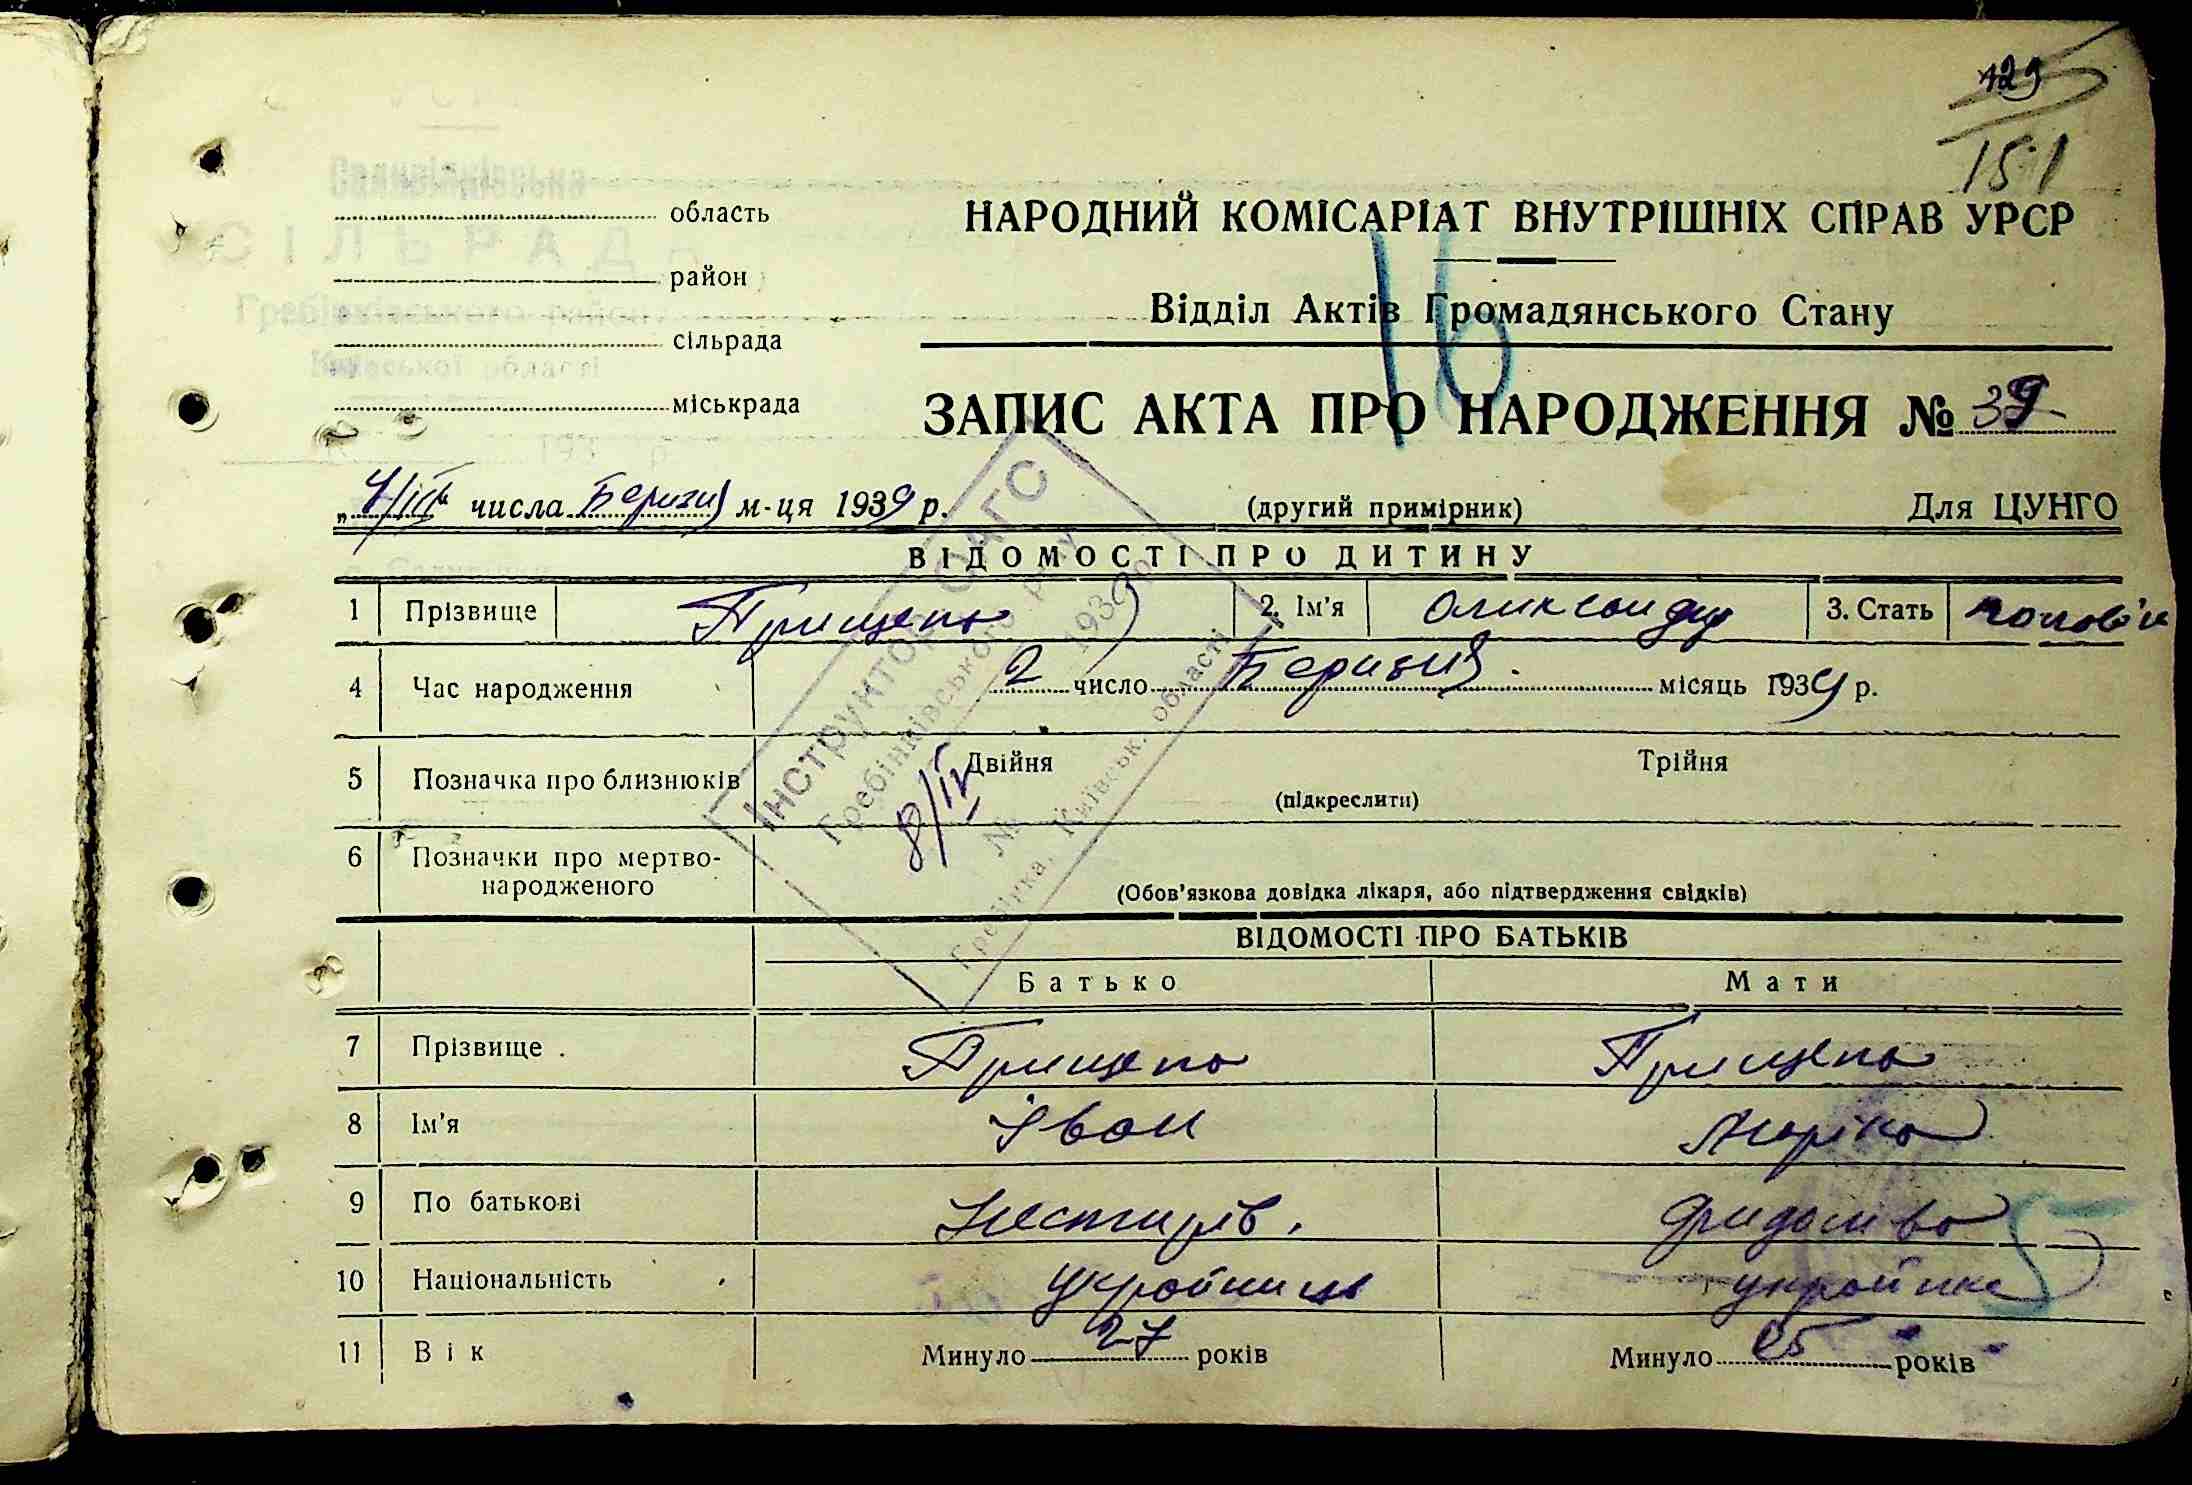 129
151
Саливінківська
область
НАРОДНИЙ КОМІСАРІАТ ВНУТРІШНІХ СПРАВ УРСР
СІЛЬРАДА
район
Гребінківського району
Відділ Актів Громадянського Стану
сільрада
Київської області
16
міськрада
ЗАПИС АКТА ПРО НАРОДЖЕННЯ № 39
193 р.
„4/III" числа Березня м-ця 1939 р.
(другий примірник)
Для ЦУНГО
ВІДОМОСТІ ПРО ДИТИНУ
1 Прізвище Прищепа 2. Ім'я Олександр 3. Стать чоловіч
4 Час народження 2 число Березня місяць 1939 р.
5 Позначка про близнюків Двійня Трійня
(підкреслити)
6 Позначки про мертво-
народженого
(Обов'язкова довідка лікаря, або підтвердження свідків)
Інструктор ОАГС
Гребінківського р-ну
8/IV 1939 р
№
Гребінка, Київськ. області
ВІДОМОСТІ ПРО БАТЬКІВ
Батько Мати
7 Прізвище Прищепа Прищепа
8 Ім'я Іван
9 По батькові
10 Національність українець українка
11 Вік Минуло 27 років Минуло 25 років
5